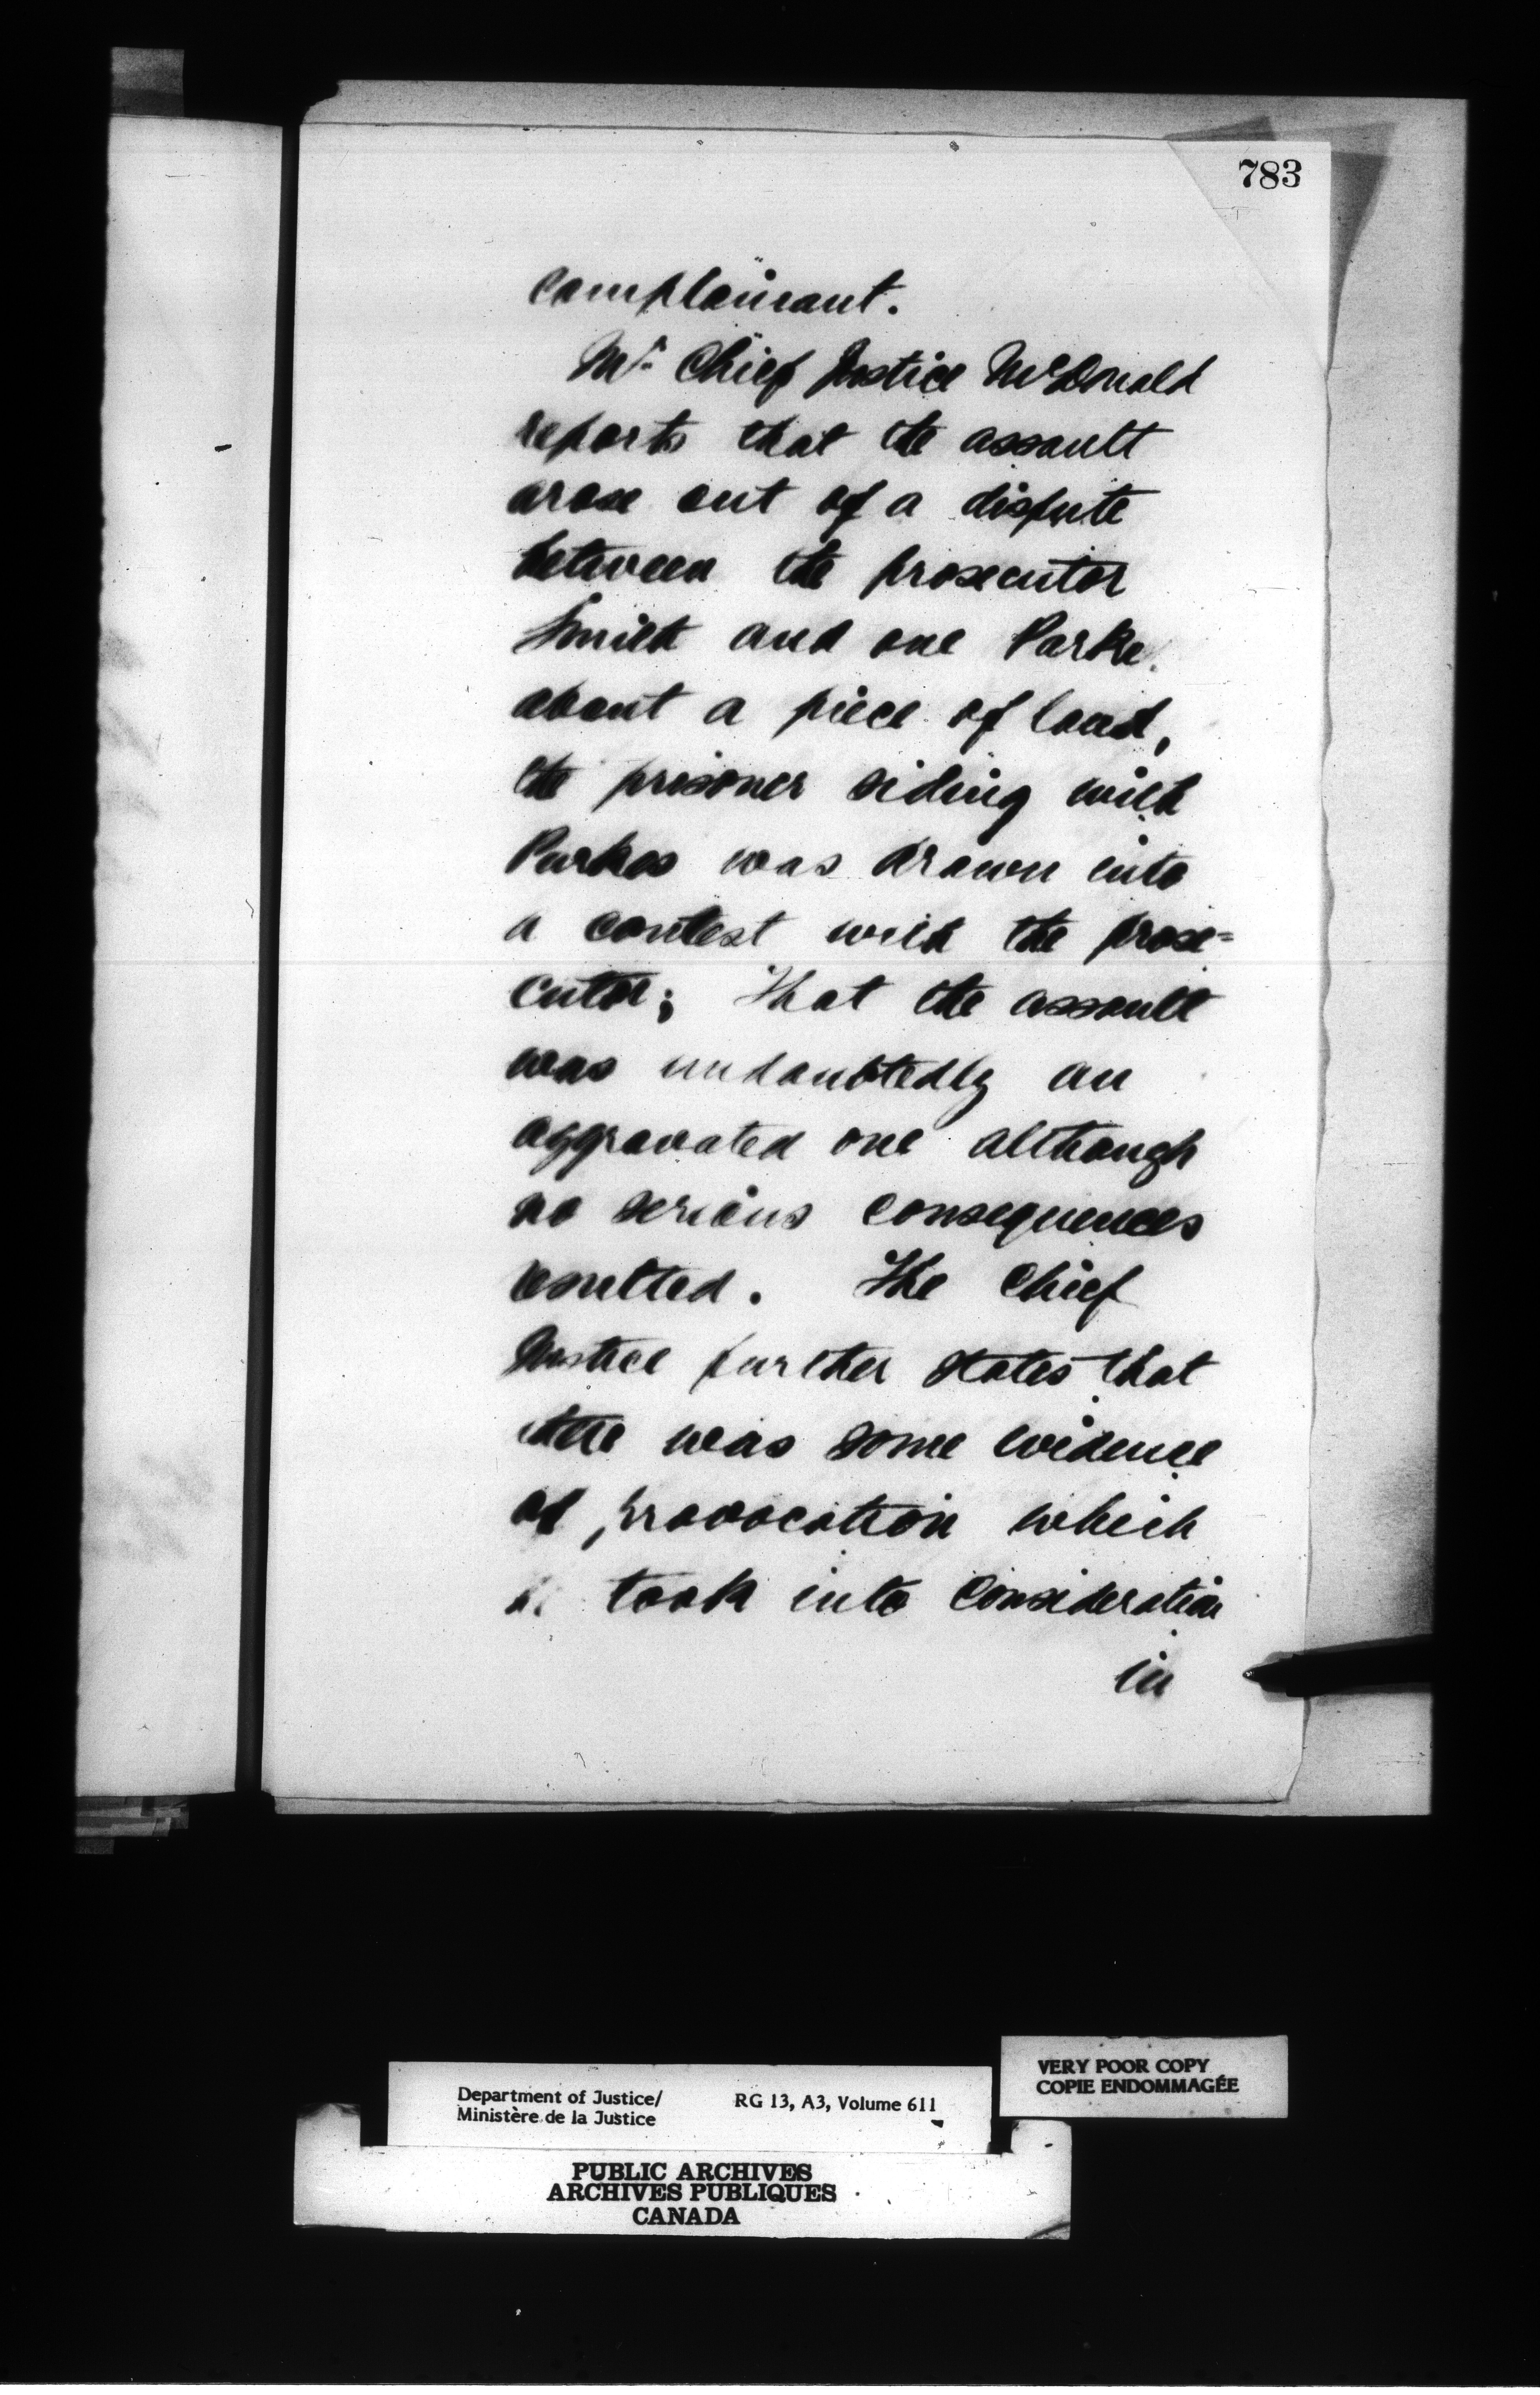 783
complainant.
Mr. Chief Justice McDonald
reports that the assault
arose out of a dispute
between the prosecutor
Smith and one Parke
about a piece of land,
the prisoner siding with
Parkes was drawn into
a contest with the prose=
cutor; That the assault
was undoubtedly an
aggravated one although
no serious consequences
resulted. The Chief
Justice further states that
there was some evidence
of provocation which
took into consideration
in
VERY POOR COPY
COPIE ENDOMMAGÉE
Department of Justice/ RG 13, A3, Volume 611
Ministère de la Justice
PUBLIC ARCHIVES
ARCHIVES PUBLIQUES
CANADA